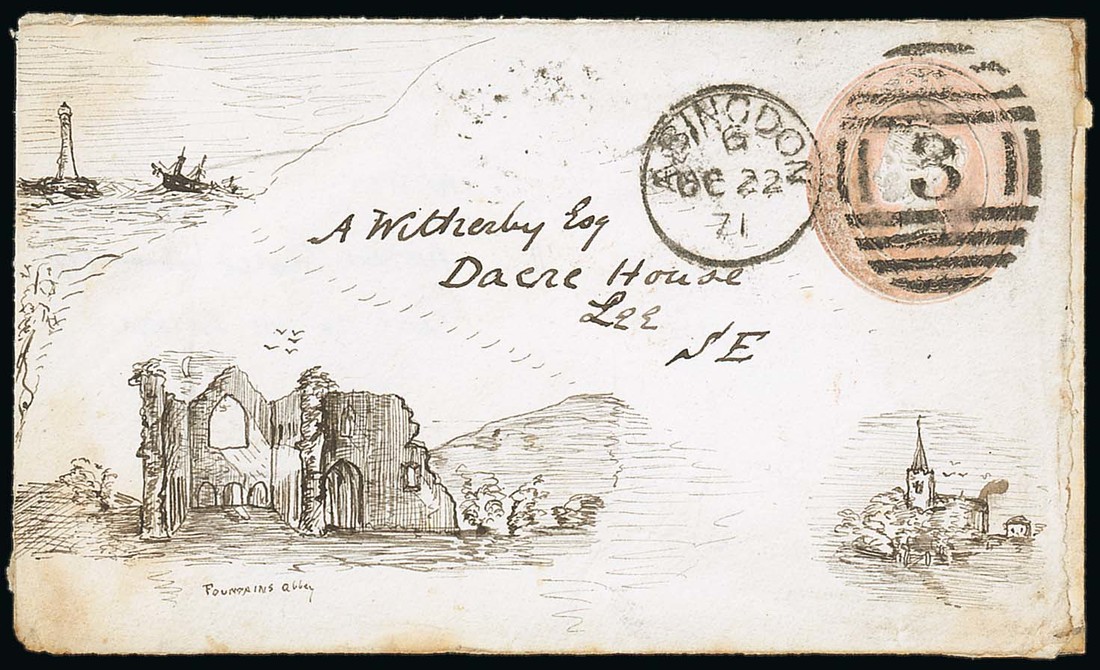 ABINGDON
C
DE 22
71
3
A Witherby Esq
Dacre House
Lee
S E
Fountains Abbey